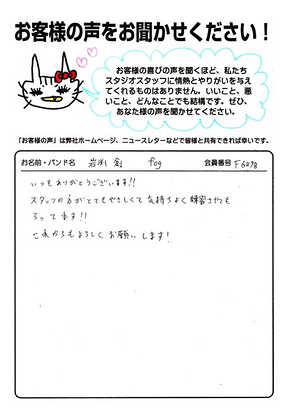 お客様の声をお聞かせください！
お客様の喜びの声を聞くほど、私たち
スタジオスタッフに情熱とやりがいを与え
てくれるものはありません。いいこと、悪
いこと、どんなことでも結構です。ぜひ、
あなた様の声を聞かせてください。
「お客様の声」は弊社ホームページ、ニュースレターなどで皆様と共有できれば幸いです。
お名前・バンド名 岩渕 会員番号
いつもありがとうございます!!
スタッフの方がとてもやさしくて気持ちよく練習させても
らってます!!
これからもよろしくお願いします!